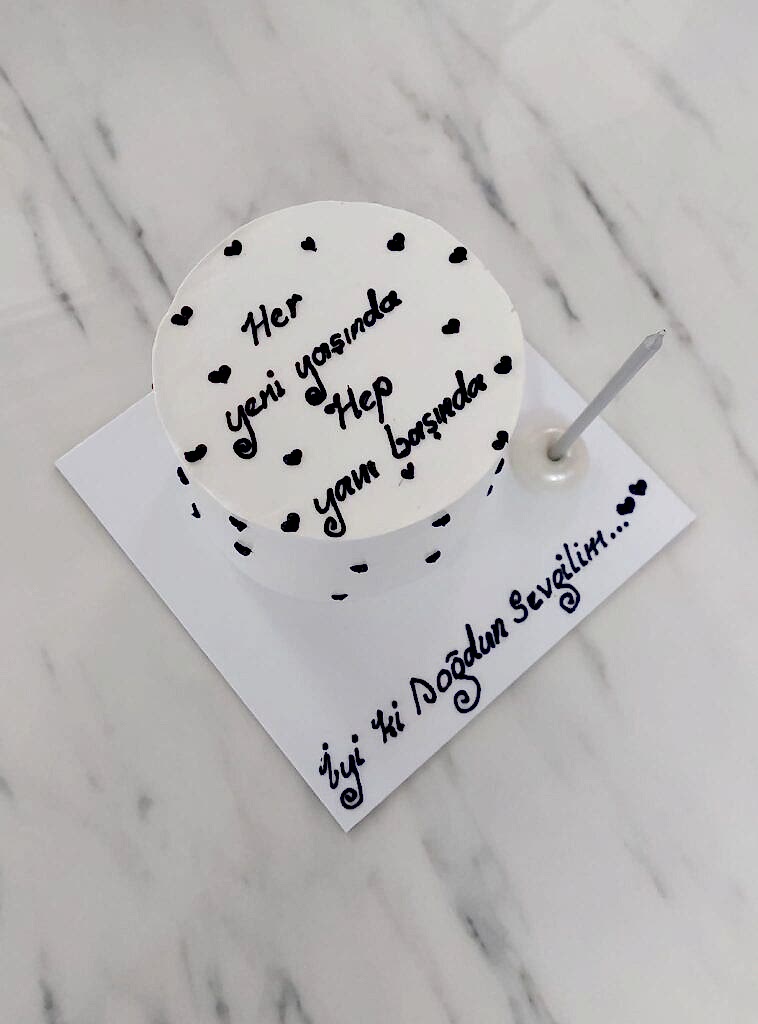 Her
yeni yaşında
Hep
yanı başında
İyi ki Doğdun Sevgilim...